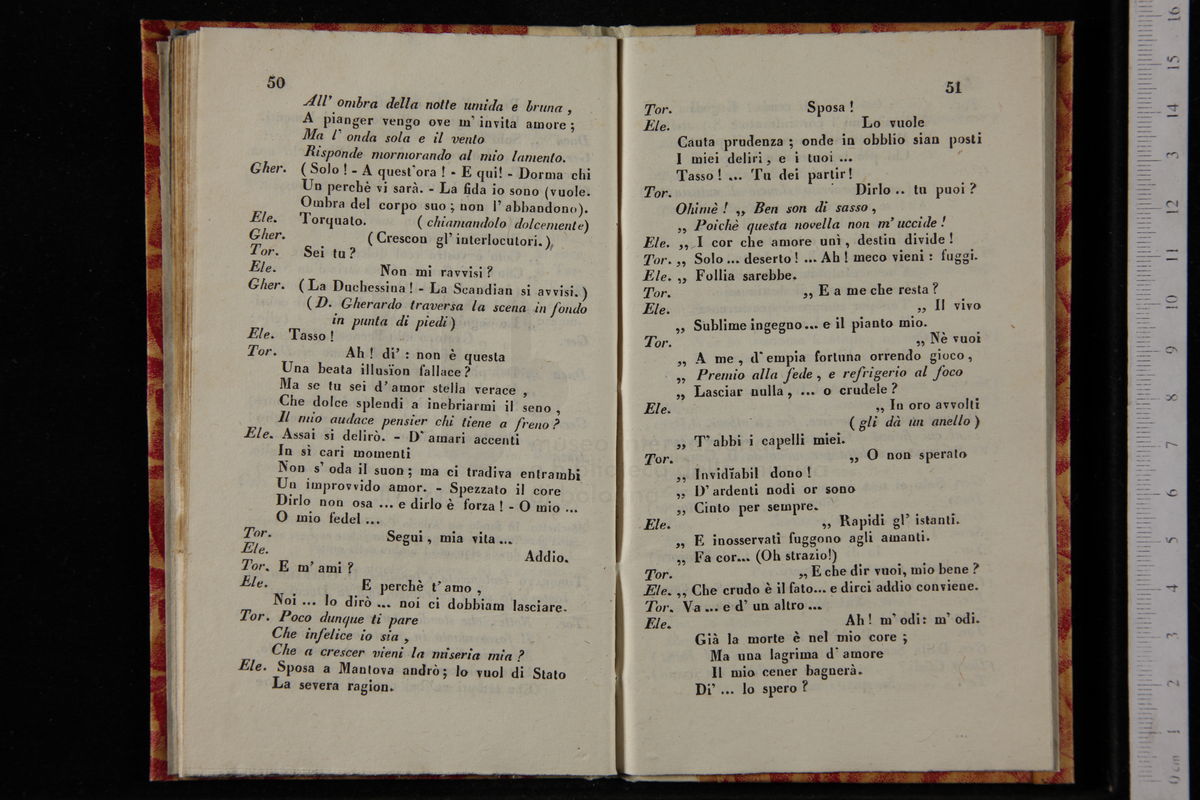 50
All' ombra della notte umida e bruna ,
A pianger vengo ove m' invita amore ;
Ma l' onda sola e il vento
Risponde mormorando al mio lamento.
Gher. ( Solo ! - A quest'ora ! - E qui! - Dorma chi
Un perchè vi sarà. - La fida io sono (vuole.
Ombra del corpo suo ; non l' abbandono).
Ele. Torquato. ( chiamandolo dolcemente)
Gher. (Crescon gl' interlocutori. )
Tor. Sei tu ?
Ele. Non mi ravvisi ?
Gher. ( La Duchessina ! - La Scandian si avvisi. )
( D. Gherardo traversa la scena in fondo
in punta di piedi )
Ele. Tasso !
Tor. Ah ! di' : non è questa
Una beata illusïon fallace ?
Ma se tu sei d' amor stella verace ,
Che dolce splendi a inebriarmi il seno ,
Il mio audace pensier chi tiene a freno ?
Ele. Assai si delirò. - D' amari accenti
In sì cari momenti
Non s' oda il suon ; ma ci tradiva entrambi
Un improvvido amor. - Spezzato il core
Dirlo non osa ... e dirlo è forza ! - O mio ...
O mio fedel ...
Tor. Segui , mia vita ...
Ele. Addio.
Tor. E m' ami ?
Ele. E perchè t' amo ,
Noi ... lo dirò ... noi ci dobbiam lasciare.
Tor. Poco dunque ti pare
Che infelice io sia ,
Che a crescer vieni la miseria mia ?
Ele. Sposa a Mantova andrò ; lo vuol di Stato
La severa ragion.
51
Tor. Sposa !
Ele. Lo vuole
Cauta prudenza ; onde in obblio sian posti
I miei deliri , e i tuoi ...
Tasso ! ... Tu dei partir !
Tor. Dirlo .. tu puoi ?
Ohimè ! ,, Ben son di sasso ,
,, Poichè questa novella non m' uccide !
Ele. ,, I cor che amore unì , destin divide !
Tor. ,, Solo ... deserto ! ... Ah ! meco vieni : fuggi.
Ele. ,, Follia sarebbe.
Tor. ,, E a me che resta ?
Ele. ,, Il vivo
,, Sublime ingegno... e il pianto mio.
Tor. ,, Nè vuoi
,, A me , d' empia fortuna orrendo gioco ,
,, Premio alla fede , e refrigerio al foco
,, Lasciar nulla , ... o crudele ?
Ele. ,, In oro avvolti
( gli dà un anello )
,, T' abbi i capelli miei.
Tor. ,, O non sperato
,, Invidïabil dono !
,, D' ardenti nodi or sono
,, Cinto per sempre.
Ele. ,, Rapidi gl' istanti.
,, E inosservati fuggono agli amanti.
,, Fa cor... (Oh strazio!)
Tor. ,, E che dir vuoi, mio bene ?
Ele. ,, Che crudo è il fato... e dirci addio conviene.
Tor. Va ... e d' un altro ...
Ele. Ah ! m' odi : m' odi.
Già la morte è nel mio core ;
Ma una lagrima d' amore
Il mio cener bagnerà.
Di' ... lo spero ?